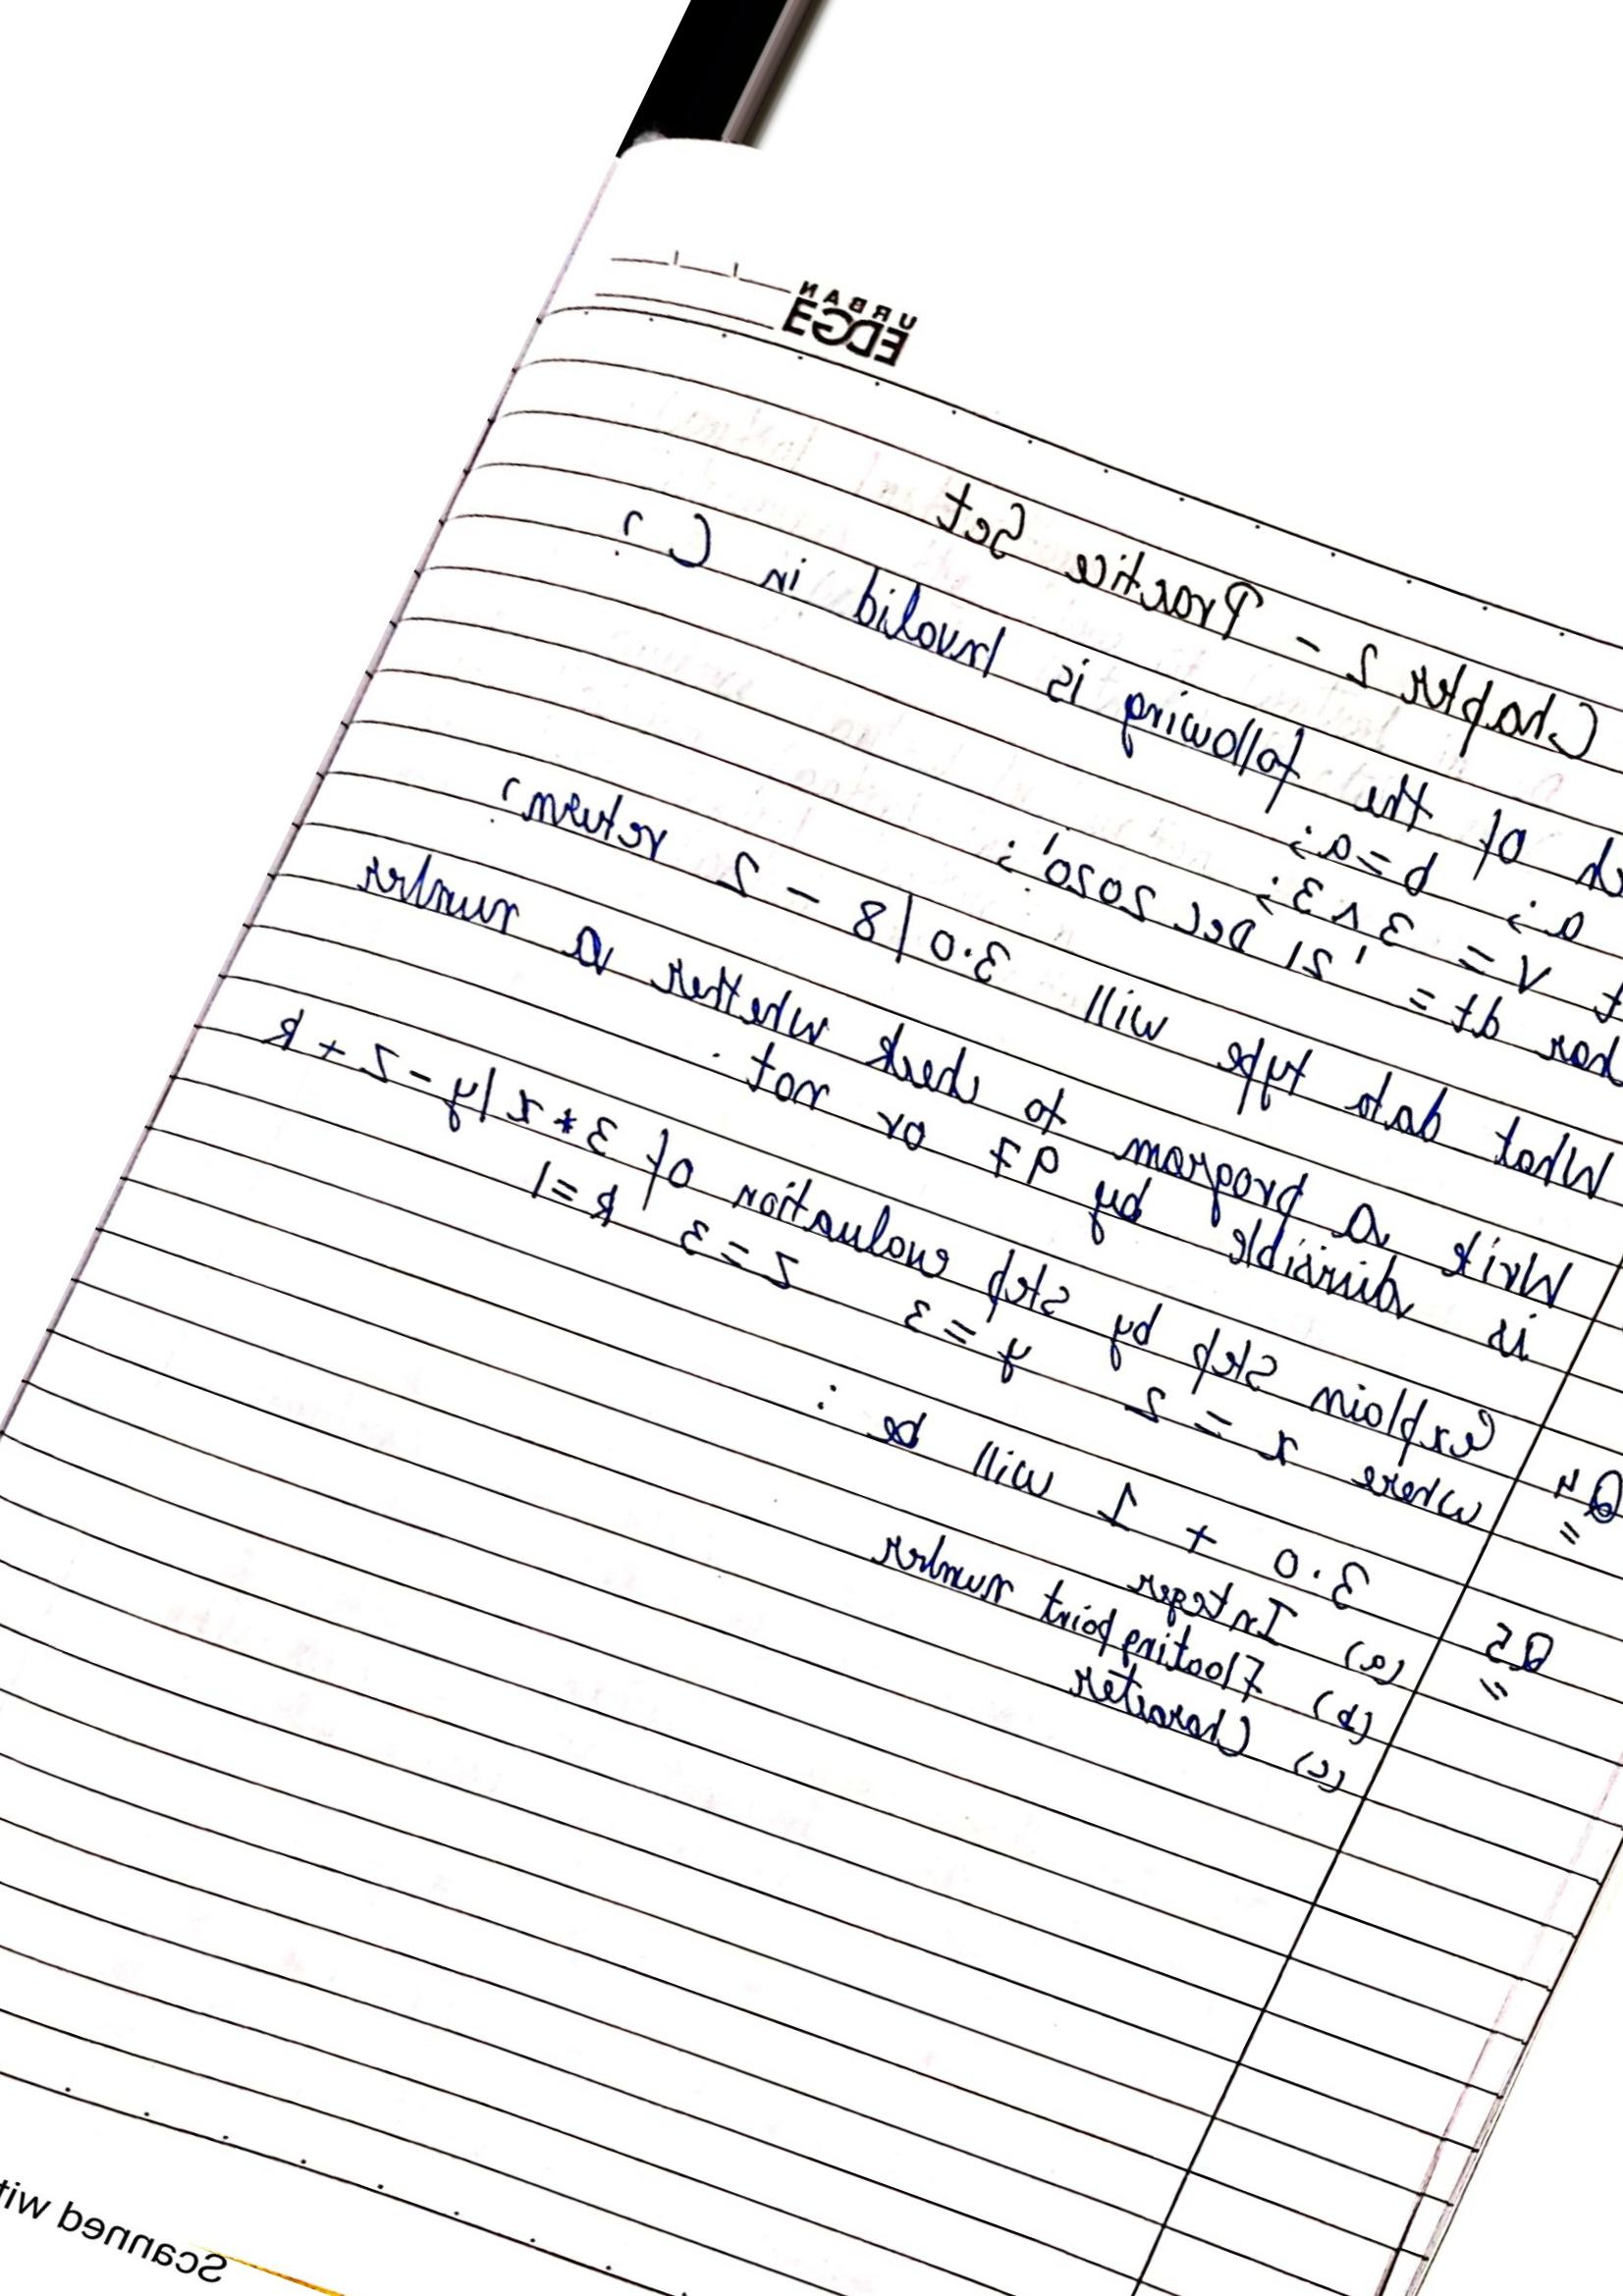 URBAN
EDGE
Chapter 2 - Practice Set
of the following is Invalid in C?
a; b=a;
V = 3^3;
dt = '21 Dec 2020';
What data type will 3.0/8 - 2 return?
Write a program to check whether a number
is divisible by 97 or not.
Q4 Explain step by step evaluation of 3*x/y-z+k
where x = 2 y = 3 z = 3 k = 1
Q5 3.0 + 1 will be :
(a) Integer
(b) Floating point number
(c) Character
Scanned